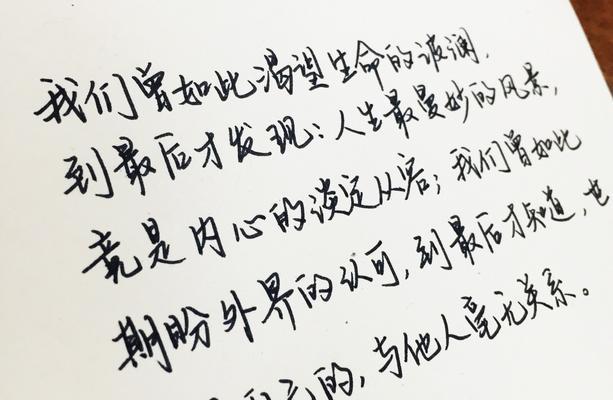 我们曾如此渴望生命的波澜，
到最后才发现：人生最曼妙的风景，
竟是内心的淡定从容；我们曾如此
期盼外界的认可，到最后才知道，世
的，与他人毫无关系。